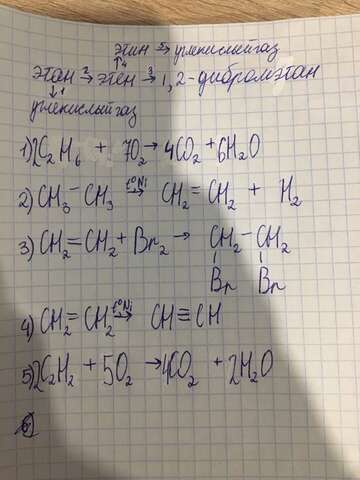 этин 5→ углекислый газ
↑4
этан 2→ этен 3→ 1,2-дибромэтан
↓1
углекислый газ
1) 2C₂H₆ + 7O₂ → 4CO₂ + 6H₂O
2) CH₃ – CH₃ t°Ni→ CH₂ = CH₂ + H₂
3) CH₂ = CH₂ + Br₂ → CH₂ – CH₂
Br Br
4) CH₂ = CH₂ t°Ni→ CH ≡ CH
5) 2C₂H₂ + 5O₂ → 4CO₂ + 2H₂O